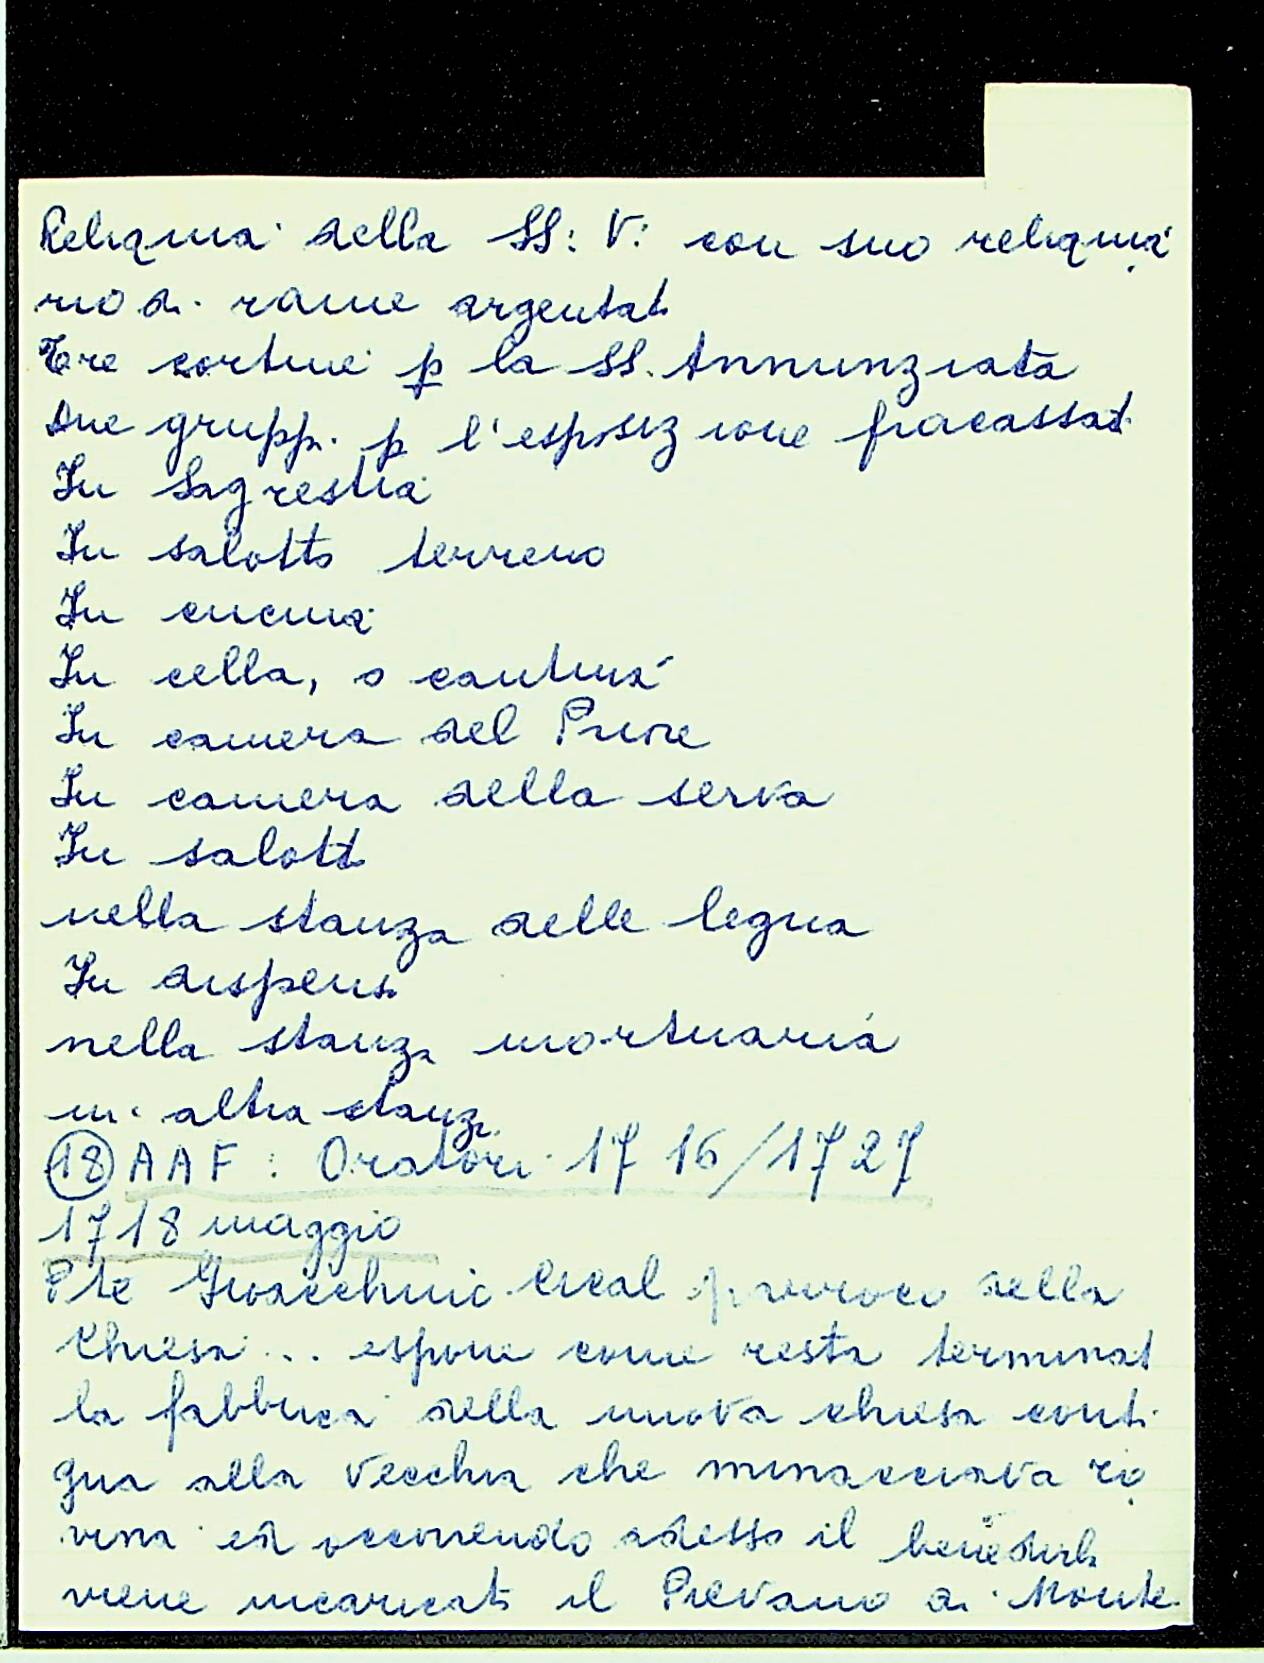 Reliquia della SS: V: con suo reliquia
rio di rame argentato
Tre cortine p la SS. Annunziata
due gruppi p l'esposizione fracassati
In Sagrestia
In salotto terreno
In cucina
In cella, o cantina
In camera del Priore
In camera della serva
In salotto
nella stanza delle legna
In dispensa
nella stanza mortuaria
in altra stanza
18 AAF: Oratori 1716/1727
1718 maggio
Pte Gioacchino parroco della
Chiesa... espone come resta terminata
la fabbrica della nuova chiesa conti
gua alla vecchia che minacciava ro
vina ed occorrendo adesso il benedirla
viene incaricato il Pievano di Monte